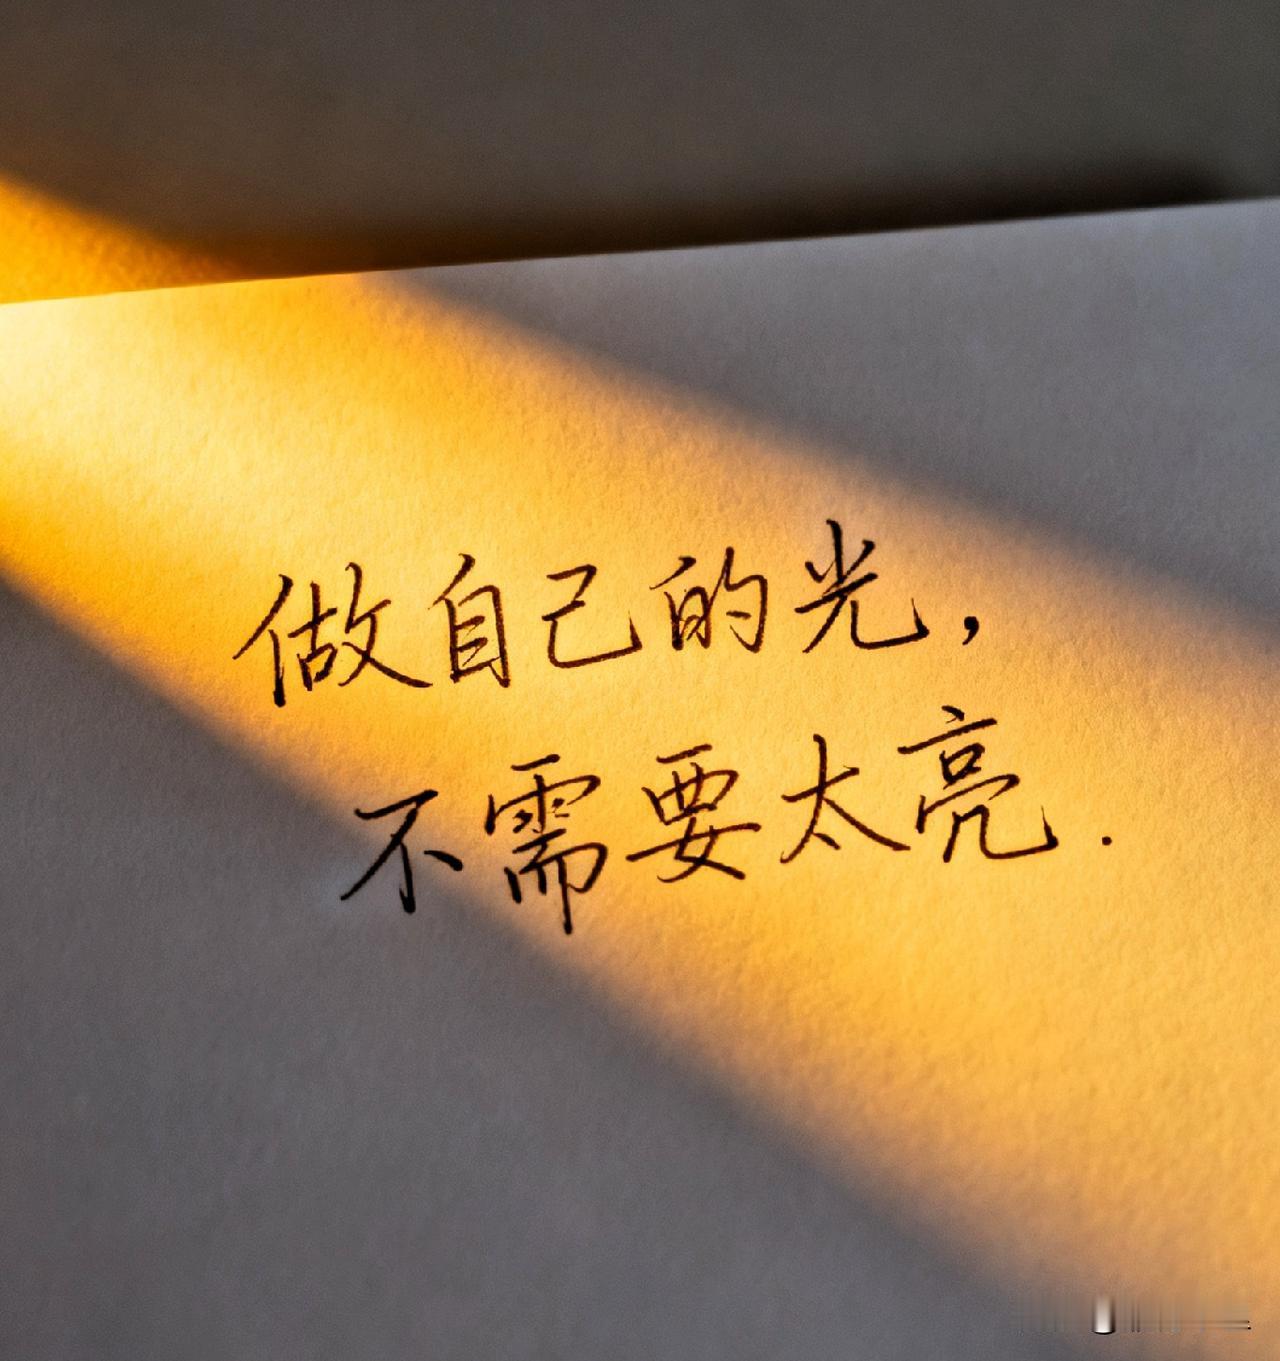 做自己的光，
不需要太亮.